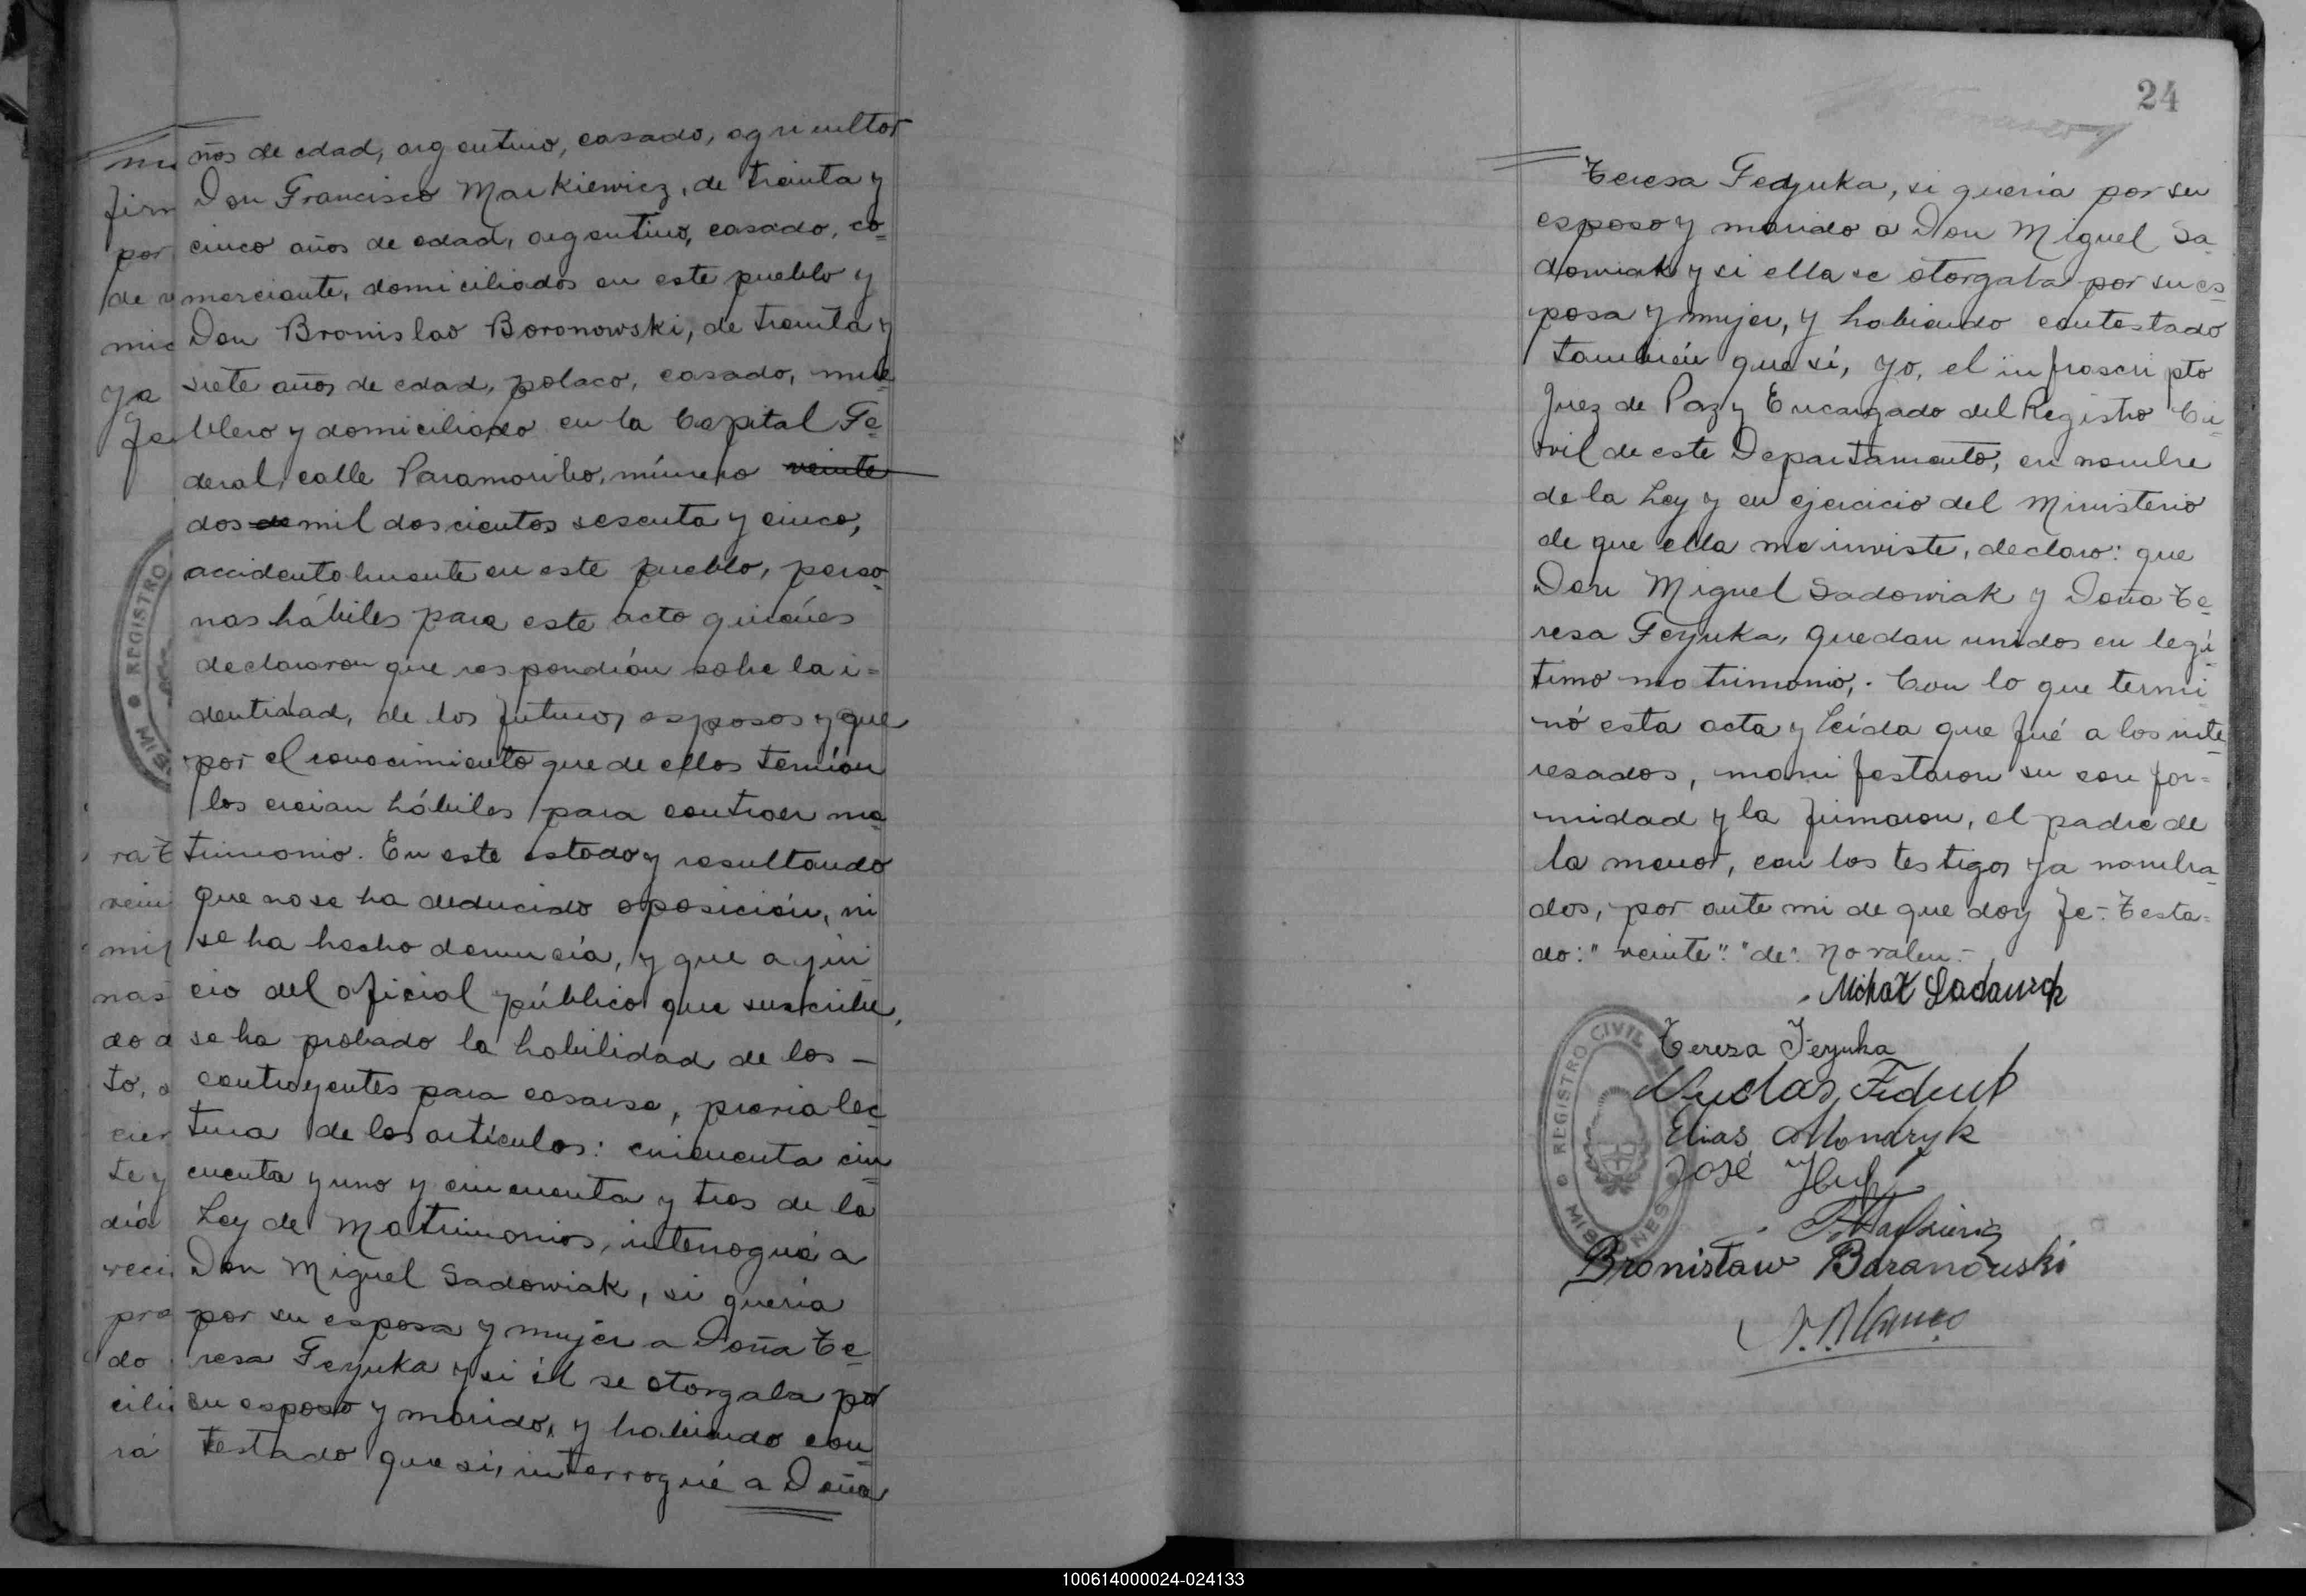 ños de edad, argentino, casado, agricultor
Don Francisco Markiewicz, de treinta y
cinco años de edad, argentino, casado, co=
merciante, domiciliados en este pueblo y
Don Bronislao Boronowski, de treinta y
siete años de edad, polaco, casado, mue=
blero y domiciliado en la Capital Fe=
deral, calle Paramaribo, número veinte
dos de mil doscientos sesenta y cinco,
accidentalmente en este pueblo, perso=
nas hábiles para este acto quiénes
declararon que respondían sobre la i=
dentidad, de los futuros esposos y que
por el conocimiento que de ellos tenían
los creian hábiles para contraer ma=
trimonio. En este estado y resultando
que no se ha deducido oposición, ni
se ha hecho denuncia, y que a jui=
cio del oficial público que suscribe,
se ha probado la habilidad de los -
contrayentes para casarse, previa lec=
tura de los artículos: cincuenta cin=
cuenta y uno y cincuenta y tres de la
Ley de Matrimonios, interrogué a
Don Miguel Sadowiak, si quería
por su esposa y mujer a Doña Te=
resa Feyuka y si él se otorgaba por
su esposo y marido, y habiendo con=
testado que si, interrogué a Doña
24
Teresa Fedyuka, si quería por su
esposo y marido a Don Miguel Sa=
dowiak y si ella se otorgaba por su es=
posa y mujer, y habiendo contestado
también que sí, yo, el infrascripto
Juez de Paz y Encargado del Registro Ci=
vil de este Departamento, en nombre
de la Ley y en ejercicio del Ministerio
de que ella me inviste, declaro: que
Don Miguel Sadowiak y Doña Te=
resa Feyuka, quedan unidos en legí=
timo matrimonio,. Con lo que termi=
nó esta acta y leída que fué a los inte=
resados, manifestaron su confor=
midad y la firmaron, el padre de
la menor, con los testigos ya nombra=
dos, por ante mi de que doy fe.- Testa=
do: "veinte": "de": No valen.-
Michał
Teresa Feyuka
Elias Mondryk
José
Bronisław Baranowski
REGISTRO CIVIL
MISIONES
REGISTRO
MIS
100614000024-024133